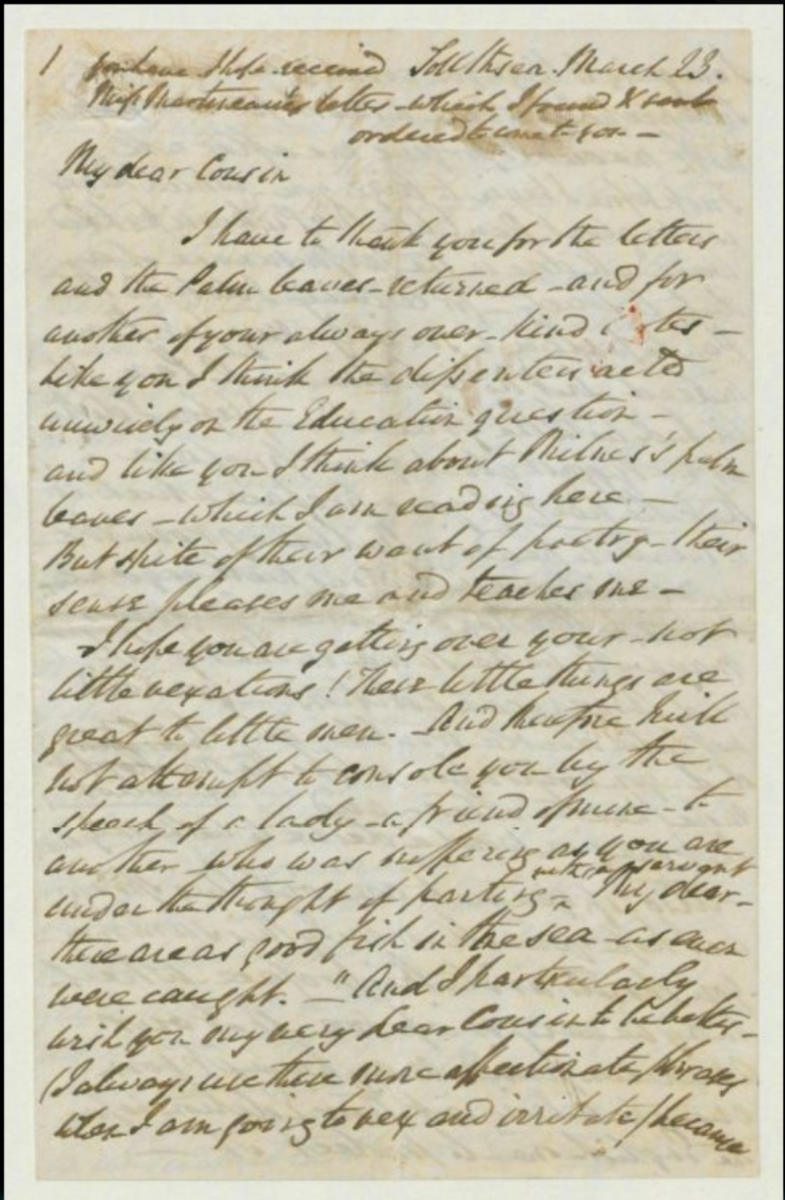 1 you have I hope received Southsea. March 23.
Miss Martineau's letter - which I found & sent
ordered to come to you -
My dear Cousin
I have to thank you for the letters
and the Palm leaves - returned - and for
another of your always over-kind
like you I think the dissenters acted
unwisely on the Education question -
and like you I think about Milnes's palm
leaves - which I am reading here -
But spite of their want of poetry - their
sense pleases me and teaches me -
I hope you are getting over your - not
little vexations! These little things are
great to little men. - And therefore I will
not attempt to console you by the
speech of a lady - a friend of mine - to
another who was suffering as you are
under the thought of parting with a servant - "My dear -
there are as good fish in the sea as ever
were caught. -" And I particularly
wish you my very dear Cousin to be better -
(I always use these more affectionate phrases
when I am going to vex and irritate) because